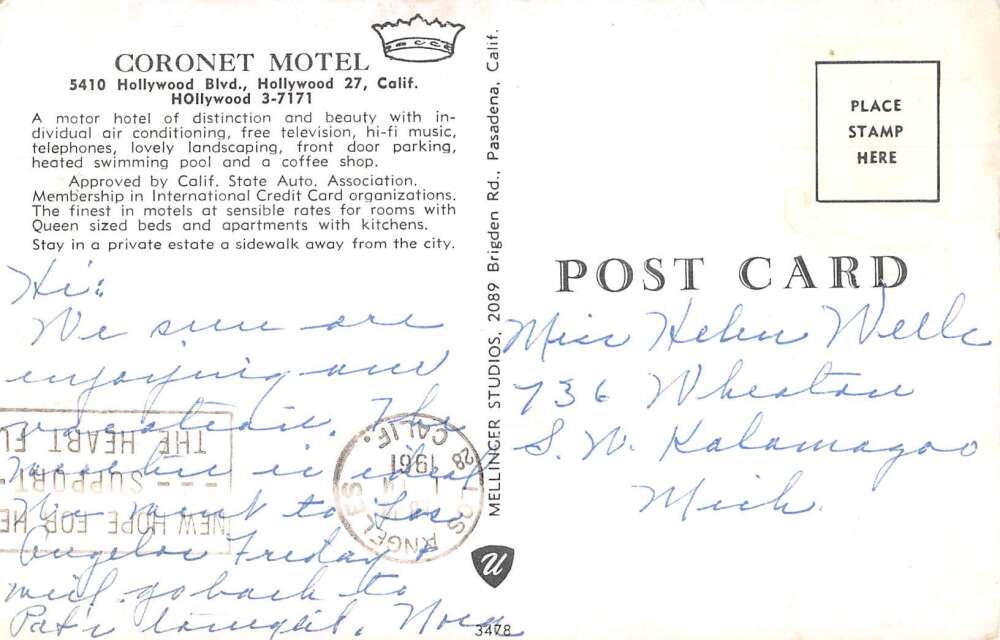 CORONET MOTEL
5410 Hollywood Blvd., Hollywood 27, Calif.
HOllywood 3-7171
A motor hotel of distinction and beauty with in-
dividual air conditioning, free television, hi-fi music,
telephones, lovely landscaping, front door parking,
heated swimming pool and a coffee shop.
Approved by Calif. State Auto. Association.
Membership in International Credit Card organizations.
The finest in motels at sensible rates for rooms with
Queen sized beds and apartments with kitchens.
Stay in a private estate a sidewalk away from the city.
Hi:
We sure are
enjoying our
vacation. The
weather is ideal
We went to Los
Angeles Friday &
will go back to
Pat's tonight, Nora
MELLINGER STUDIOS, 2089 Brigden Rd., Pasadena, Calif.
PLACE
STAMP
HERE
POST CARD
Miss Helen Wells
736 Wheaton
S. W. Kalamazoo
Mich.
NEW HOPE FOR HE
--- SUPPORT
THE HEART FU
LOS ANGELES
CALIF.
28
1961
U
3478